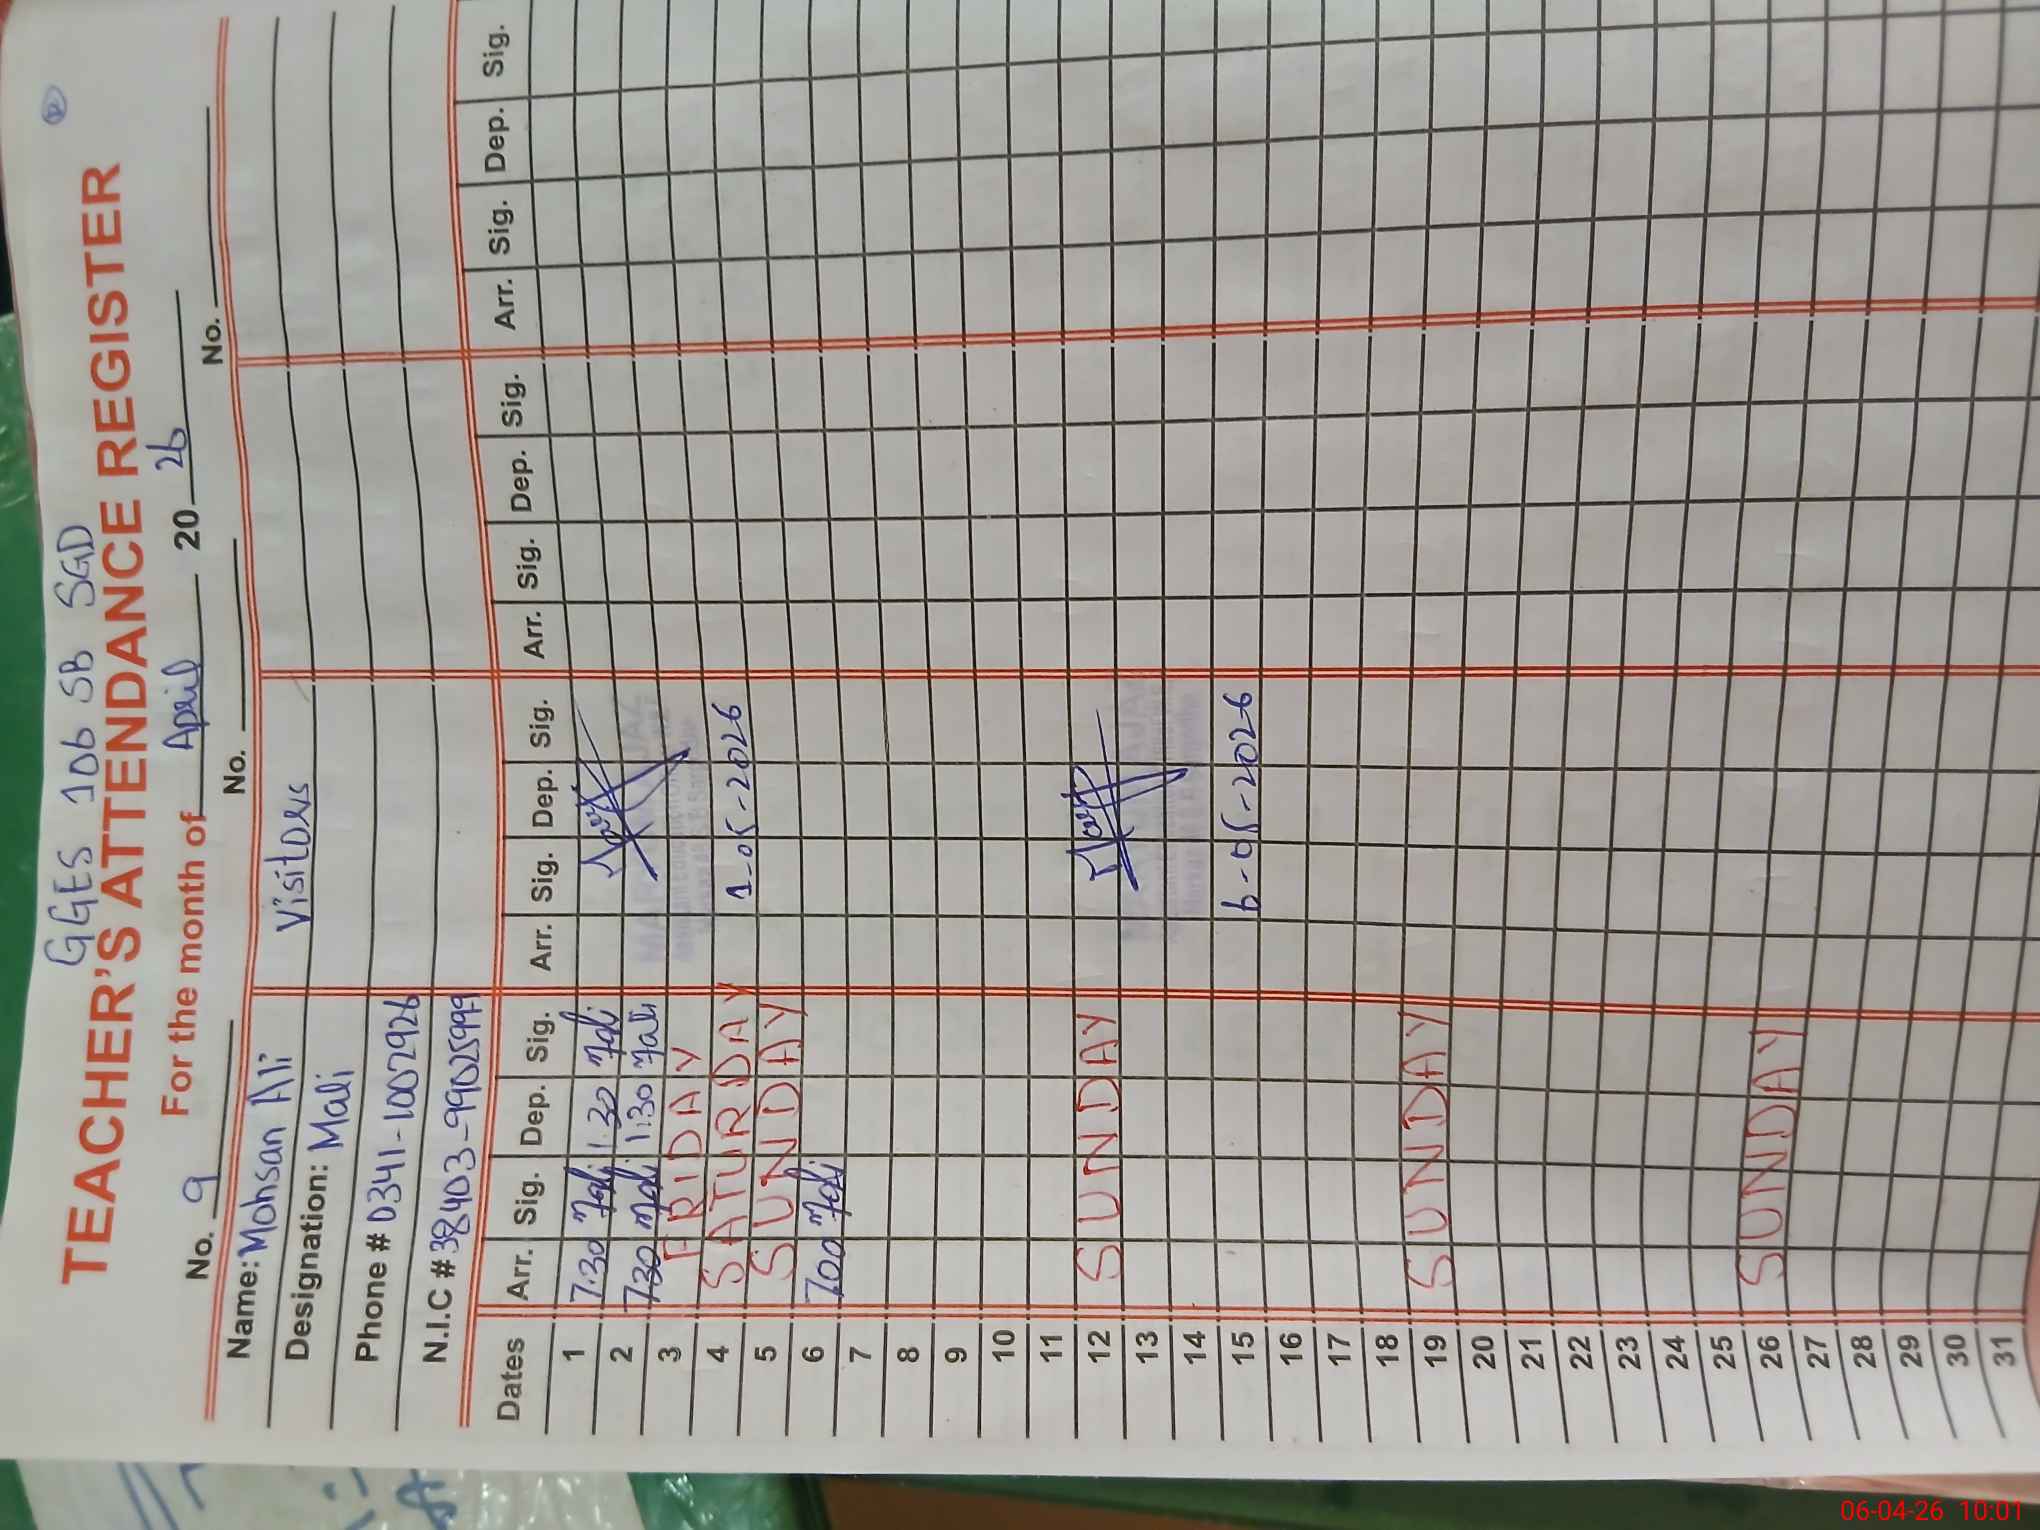 GGES 106 SB SGD
TEACHER'S ATTENDANCE REGISTER
For the month of April 2026
No. 9 No. No.
Name: Mohsan Ali Visitors
Designation: Mali
Phone # 0341-1007926
N.I.C # 38403-99025999
Dates Arr. Sig. Dep. Sig. Arr. Sig. Dep. Sig. Arr. Sig. Dep. Sig. Arr. Sig. Dep. Sig.
1 7:30 Mali 1:30 Mali
2 7:30 Mali 1:30 Mali
3 FRIDAY
4 SATURDAY 1-05-2026
5 SUNDAY
6 7:00 Mali
7
8
9
10
11
12 SUNDAY
13
14
15 6-05-2026
16
17
18
19 SUNDAY
20
21
22
23
24
25
26 SUNDAY
27
28
29
30
31
06-04-26 10:01